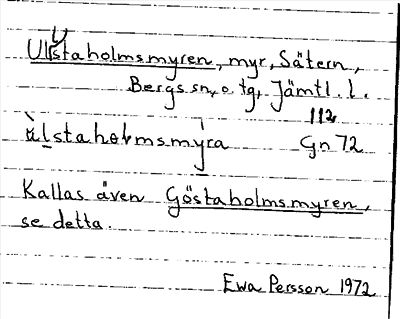 Ulvstaholmsmyren, myr, Sätern,
Bergs sn, o. tg, Jämtl. l.
112
ùl̀staholmsmỳra Gn 72
Kallas även Göstaholmsmyren,
se detta.
Ewa Persson 1972